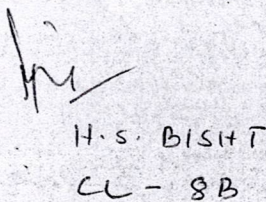 H.S. BISHT
CL - 8B